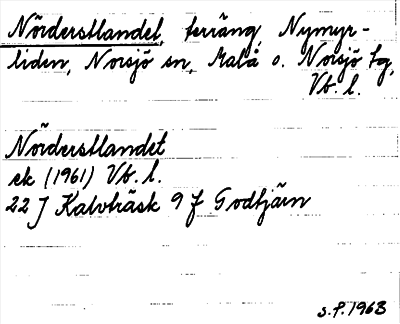 Nörderstlandet, terräng, Nymyr-
liden, Norsjö sn, Malå o. Norsjö tg,
Vb. l.
Nörderstlandet
ek (1961) Vb. l.
22 J Kalvträsk 9 f Godtjärn
S.P. 1963